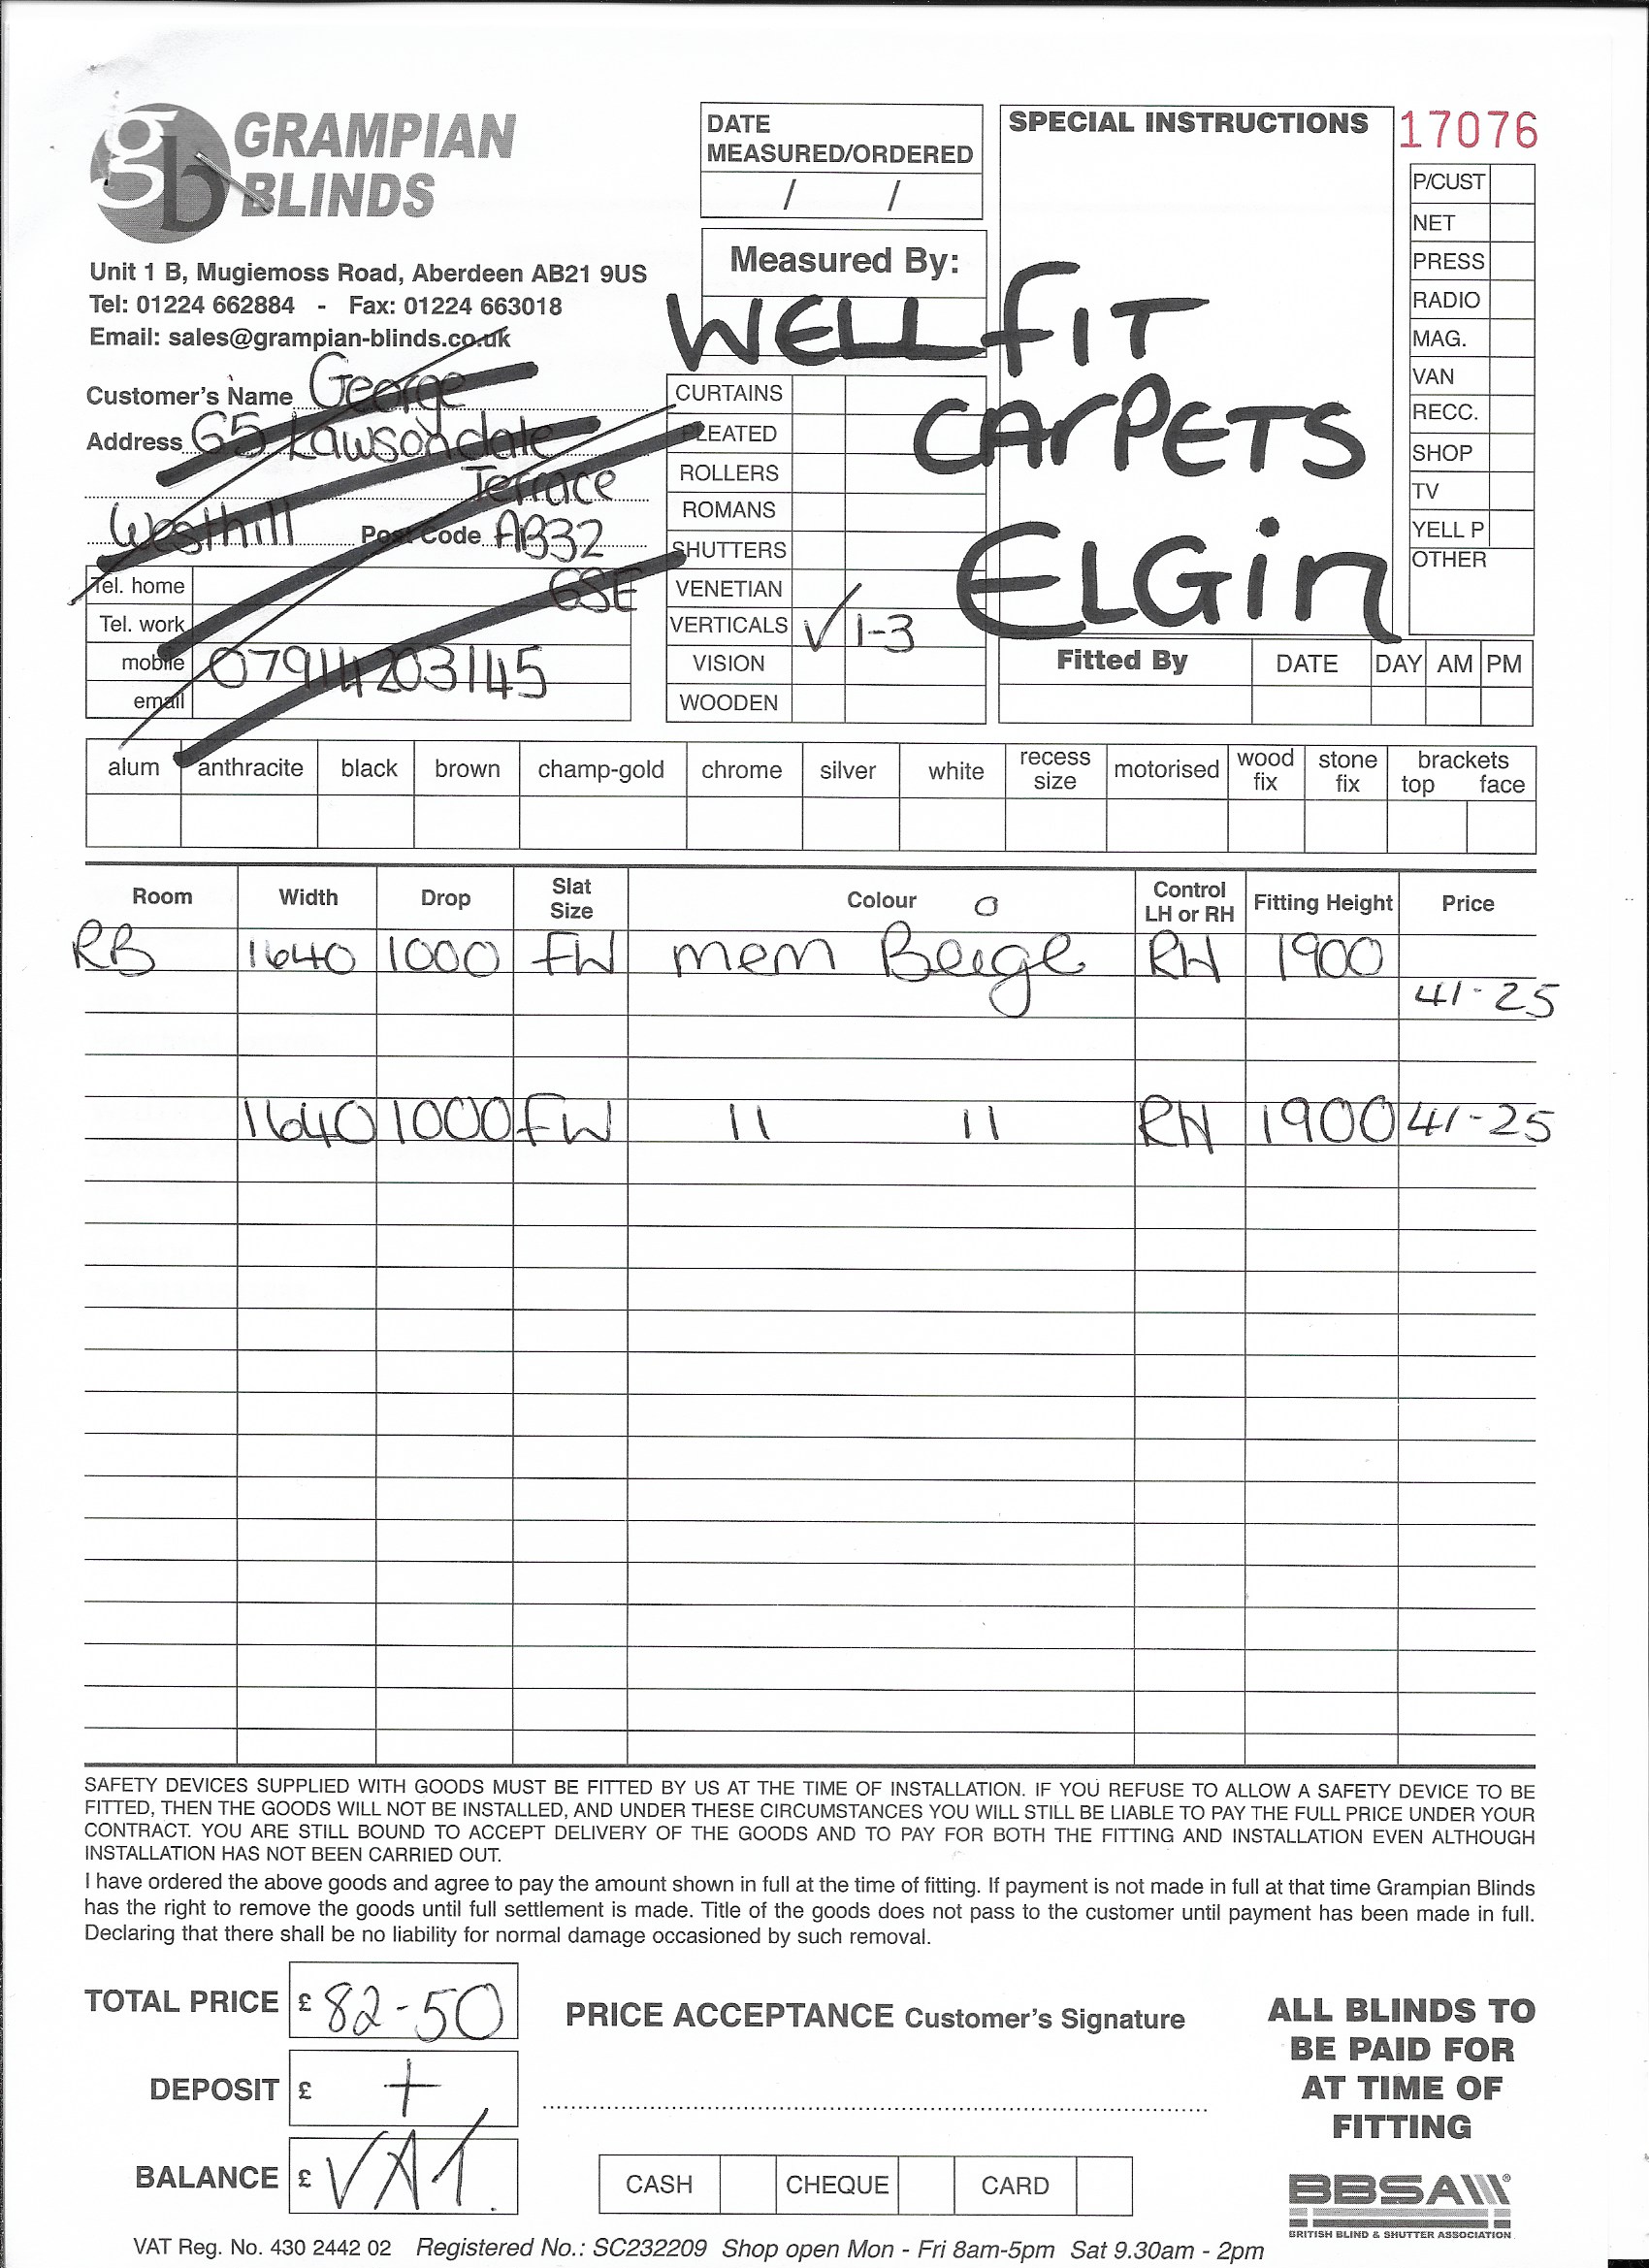 gb GRAMPIAN
BLINDS
Unit 1 B, Mugiemoss Road, Aberdeen AB21 9US
Tel: 01224 662884 - Fax: 01224 663018
Email: sales@grampian-blinds.co.uk
Customer's Name George
Address 65 Lawsondale
Terrace
Westhill Post Code AB32
6SE
Tel. home
Tel. work
mobile 07914203145
email
DATE
MEASURED/ORDERED
/ /
Measured By:
SPECIAL INSTRUCTIONS
WELL FIT
CARPETS
ELGIN
17076
P/CUST
NET
PRESS
RADIO
MAG.
VAN
RECC.
SHOP
TV
YELL P
OTHER
CURTAINS
PLEATED
ROLLERS
ROMANS
SHUTTERS
VENETIAN
VERTICALS ✓ 1-3
VISION
WOODEN
Fitted By DATE DAY AM PM
alum anthracite black brown champ-gold chrome silver white recess size motorised wood fix stone fix brackets top face
Room Width Drop Slat Size Colour Control LH or RH Fitting Height Price
RB 1640 1000 FW mem Beige RH 1900
41-25
1640 1000 FW 11 11 RH 1900 41-25
SAFETY DEVICES SUPPLIED WITH GOODS MUST BE FITTED BY US AT THE TIME OF INSTALLATION. IF YOU REFUSE TO ALLOW A SAFETY DEVICE TO BE
FITTED, THEN THE GOODS WILL NOT BE INSTALLED, AND UNDER THESE CIRCUMSTANCES YOU WILL STILL BE LIABLE TO PAY THE FULL PRICE UNDER YOUR
CONTRACT. YOU ARE STILL BOUND TO ACCEPT DELIVERY OF THE GOODS AND TO PAY FOR BOTH THE FITTING AND INSTALLATION EVEN ALTHOUGH
INSTALLATION HAS NOT BEEN CARRIED OUT.
I have ordered the above goods and agree to pay the amount shown in full at the time of fitting. If payment is not made in full at that time Grampian Blinds
has the right to remove the goods until full settlement is made. Title of the goods does not pass to the customer until payment has been made in full.
Declaring that there shall be no liability for normal damage occasioned by such removal.
TOTAL PRICE £ 82-50
DEPOSIT £ +
BALANCE £ VAT.
PRICE ACCEPTANCE Customer's Signature
CASH CHEQUE CARD
ALL BLINDS TO
BE PAID FOR
AT TIME OF
FITTING
BBSA
BRITISH BLIND & SHUTTER ASSOCIATION
VAT Reg. No. 430 2442 02 Registered No.: SC232209 Shop open Mon - Fri 8am-5pm Sat 9.30am - 2pm